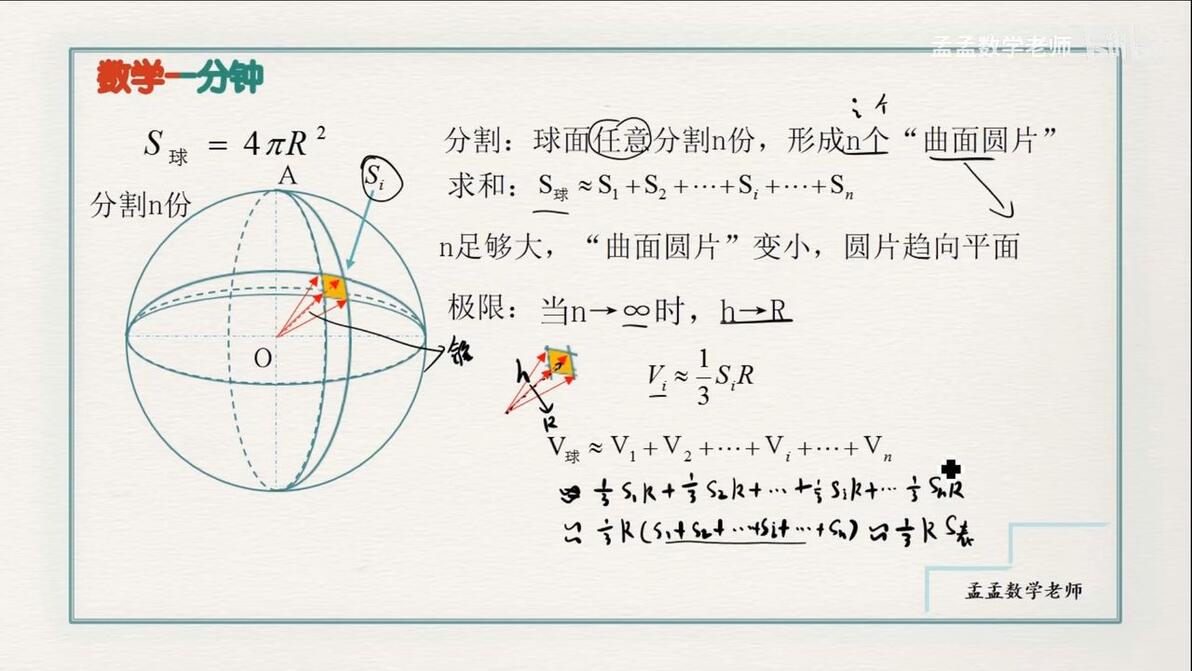 孟孟数学老师
数学一分钟
S球 = 4πR²
分割n份
A
Sᵢ
O
锥
i个
分割：球面任意分割n份，形成n个“曲面圆片”
求和：S球≈S₁+S₂+⋯+Sᵢ+⋯+Sₙ
n足够大，“曲面圆片”变小，圆片趋向平面
极限：当n→∞时，h→R
h
R
Vᵢ≈1/3SᵢR
V球≈V₁+V₂+⋯+Vᵢ+⋯+Vₙ
≈ 1/3 S₁R+1/3 S₂R+⋯+1/3 SᵢR+⋯ 1/3 SₙR
≈ 1/3 R(S₁+S₂+⋯+Sᵢ+⋯+Sₙ)≈1/3 R S表
孟孟数学老师